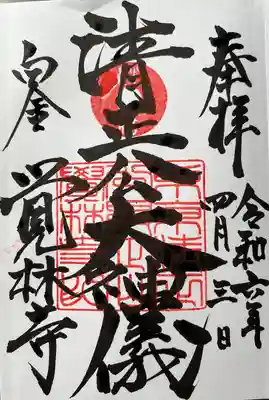 奉拝
令和六年
四月三日
清正公大神儀
白金
覚林寺